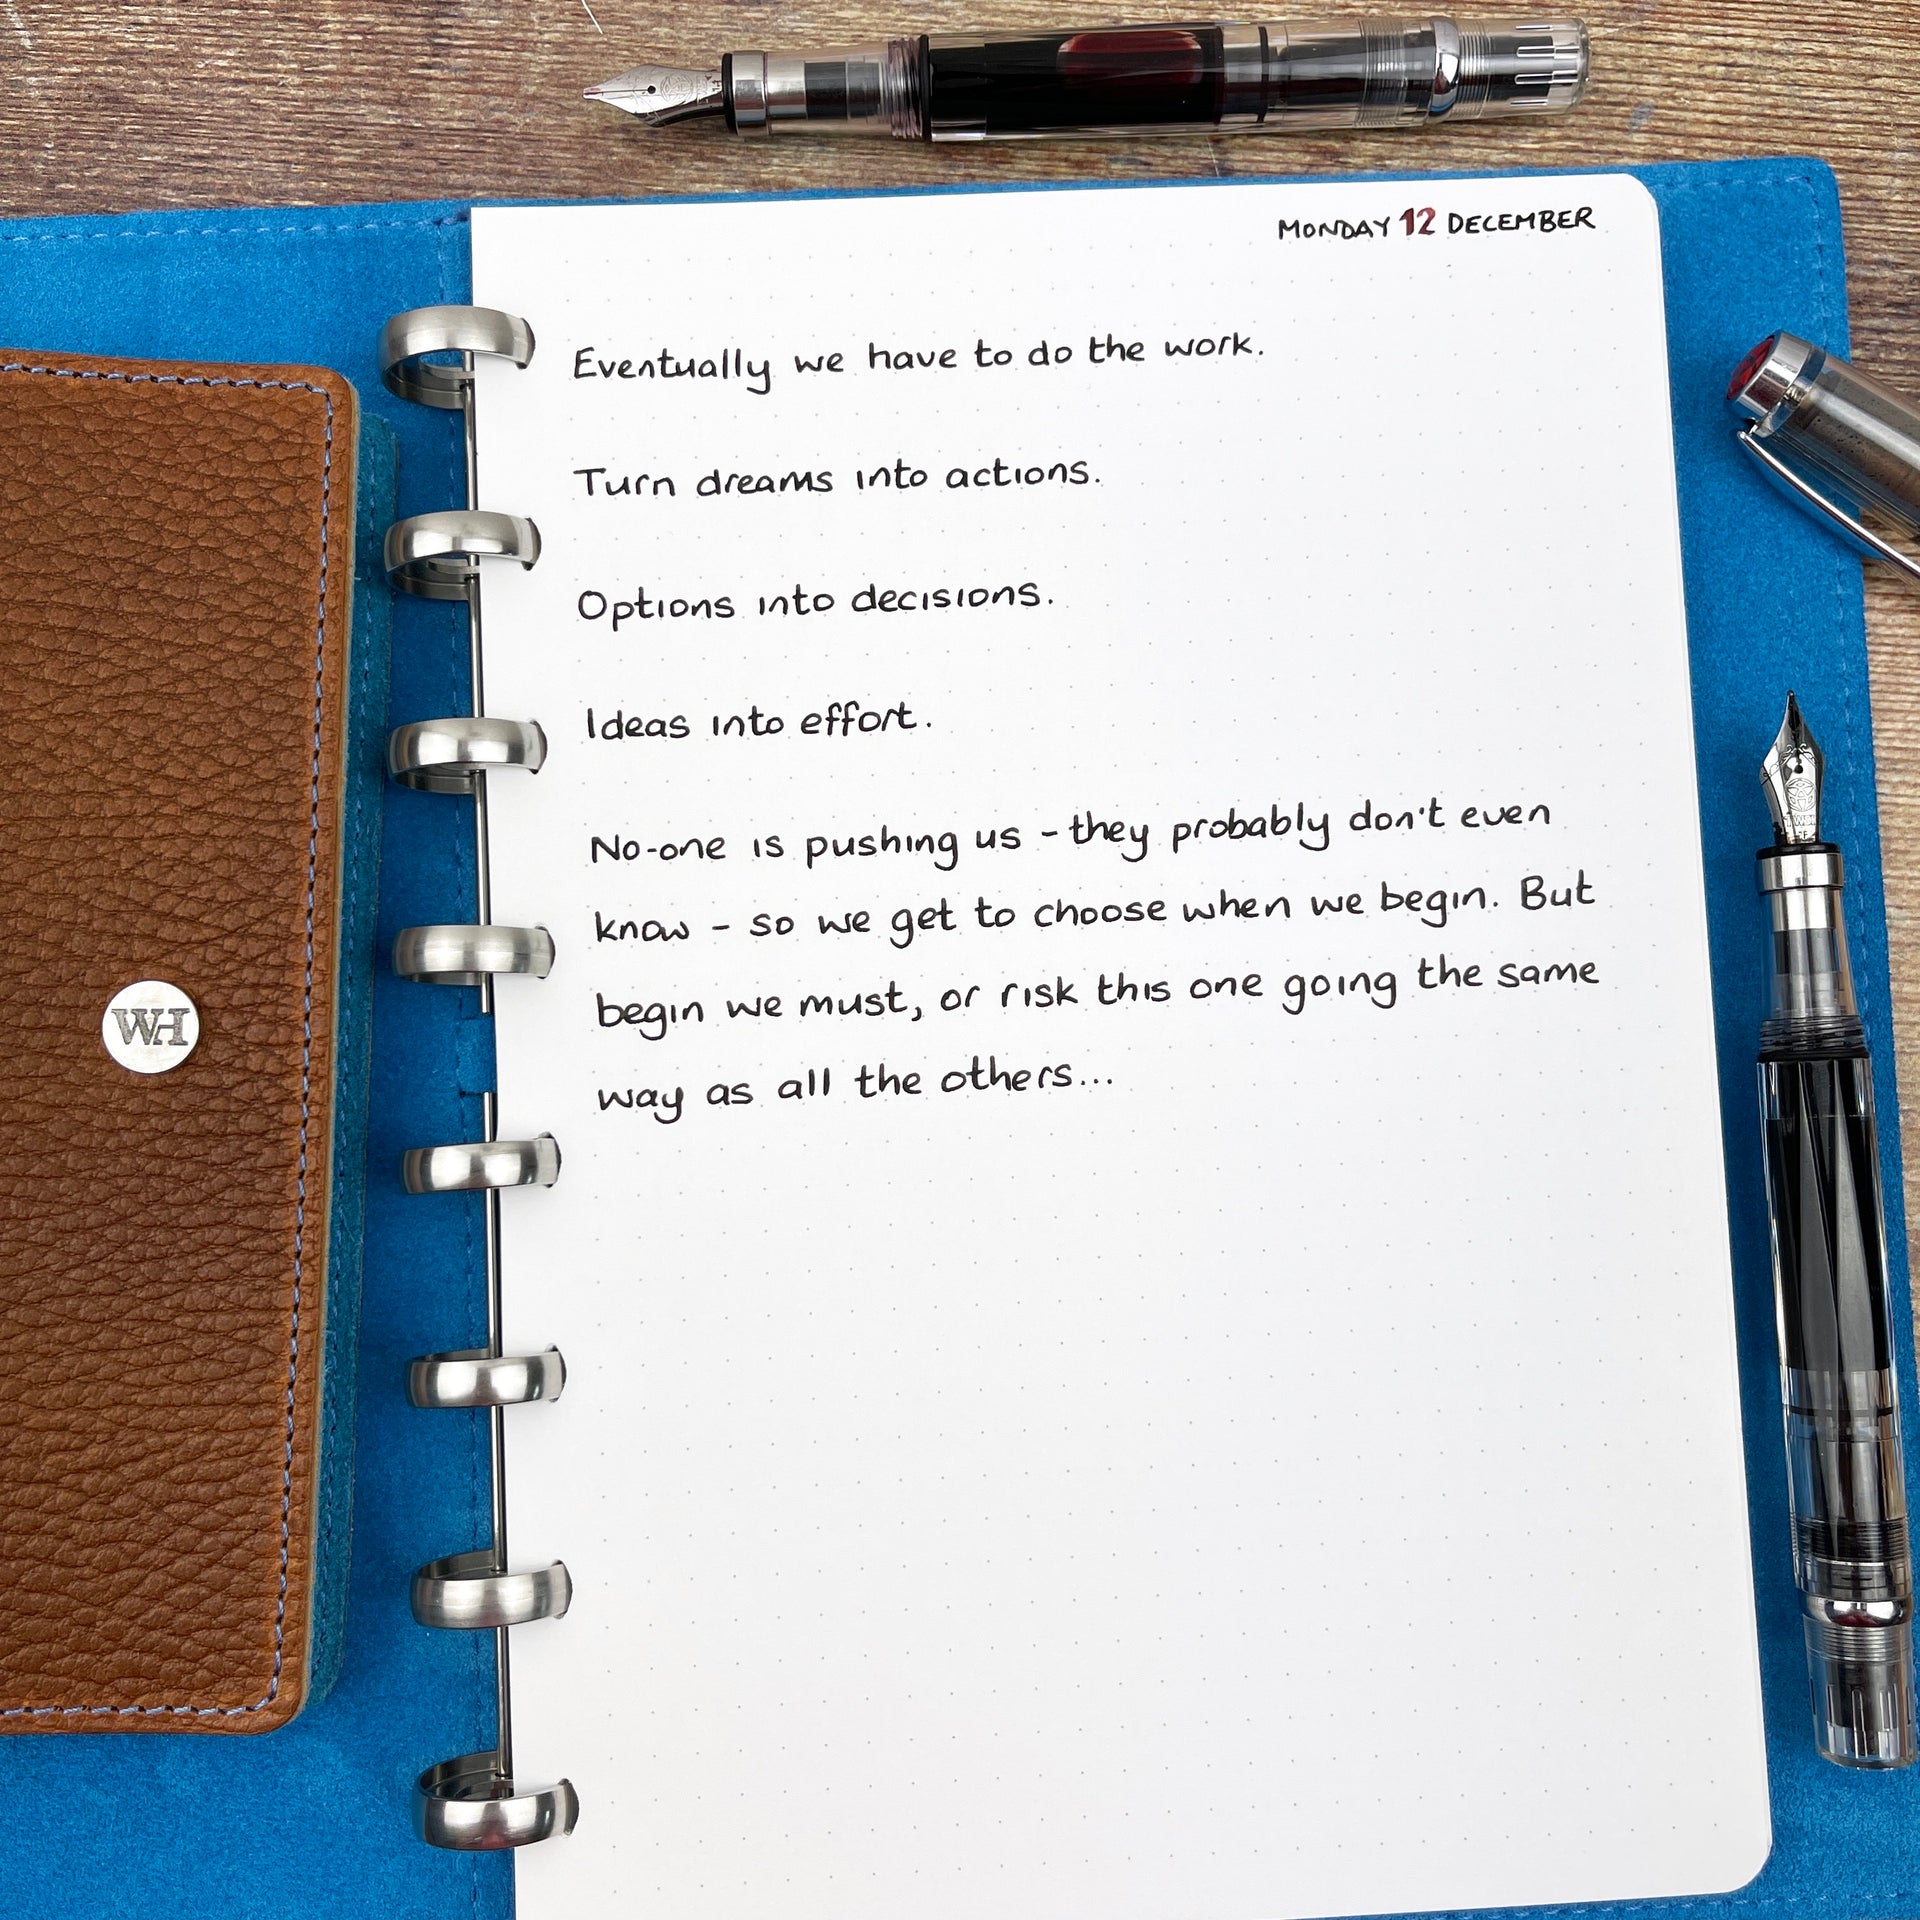 MONDAY 12 DECEMBER
Eventually we have to do the work.
Turn dreams into actions.
Options into decisions.
Ideas into effort.
No-one is pushing us - they probably don't even
know - so we get to choose when we begin. But
begin we must, or risk this one going the same
way as all the others...
WH